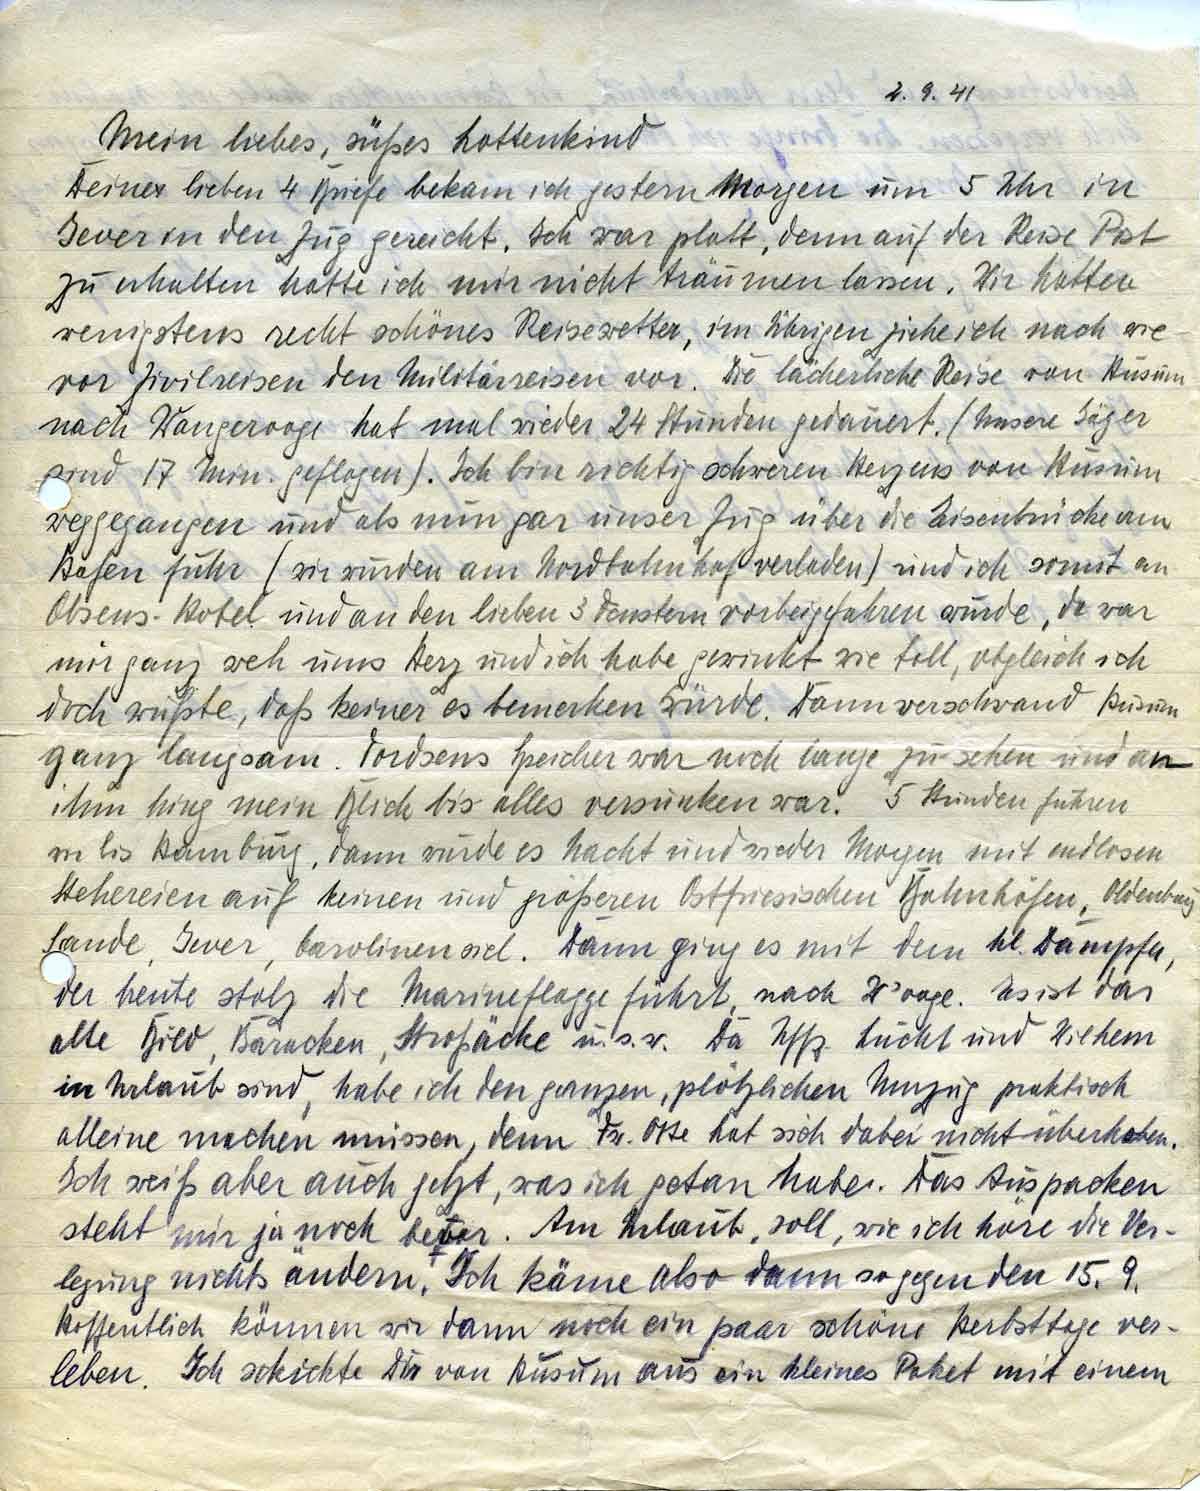 2. 9. 41
Mein liebes, süßes Lottenkind
Deine lieben 4 Briefe bekam ich gestern Morgen um 5 Uhr in
Jever in den Zug gereicht. Ich war platt, denn auf der Reise Post
zu erhalten hatte ich mir nicht träumen lassen. Wir hatten
wenigstens recht schönes Reisewetter, im Übrigen ziehe ich nach wie
vor Zivilreisen den Militärreisen vor. Die lächerliche Reise von Husum
nach Wangerooge hat mal wieder 24 Stunden gedauert. (Unsere Jäger
sind 17 Min. geflogen). Ich bin richtig schweren Herzens von Husum
weggegangen und als nun gar unser Zug über die Eisenbrücke am
Hafen fuhr (wir wurden am Nordbahnhof verladen) und ich somit an
Obsens-Hotel und an den lieben 3 Fenstern vorbeigefahren wurde, da war
mir ganz weh ums Herz und ich habe gewinkt wie toll, obgleich ich
doch wußte, daß keiner es bemerken würde. Dann verschwand Husum
ganz langsam. Fordsens Speicher war noch lange zu sehen und an
ihm hing mein Blick bis alles versunken war. 5 Stunden fuhren
wir bis Hamburg, dann wurde es Nacht und wieder Morgen mit endlosen
Stehereien auf keinen und größeren Ostfriesischen Bahnhöfen, Oldenburg
Sande, Jever, Carolinensiel. Dann ging es mit dem kl. Dampfer,
der heute stolz die Marineflagge führt, nach W'ooge. Es ist das
alte Bild, Baracken, Strohsäcke u.s.w. Da Uffz. Lucht und Wilhem
in Urlaub sind, habe ich den ganzen, plötzlichen Umzug praktisch
alleine machen müssen, denn Dr. Otte hat sich dabei nicht überhoben.
Ich weiß aber auch jetzt, was ich getan habe. Das Auspacken
steht mir ja noch bevor. Am Urlaub, soll, wie ich höre die Ver-
legung nichts ändern. Ich käme also dann so gegen den 15. 9.
Hoffentlich können wir dann noch ein paar schöne Herbsttage ver-
leben. Ich schickte Dir von Husum aus ein kleines Paket mit einem